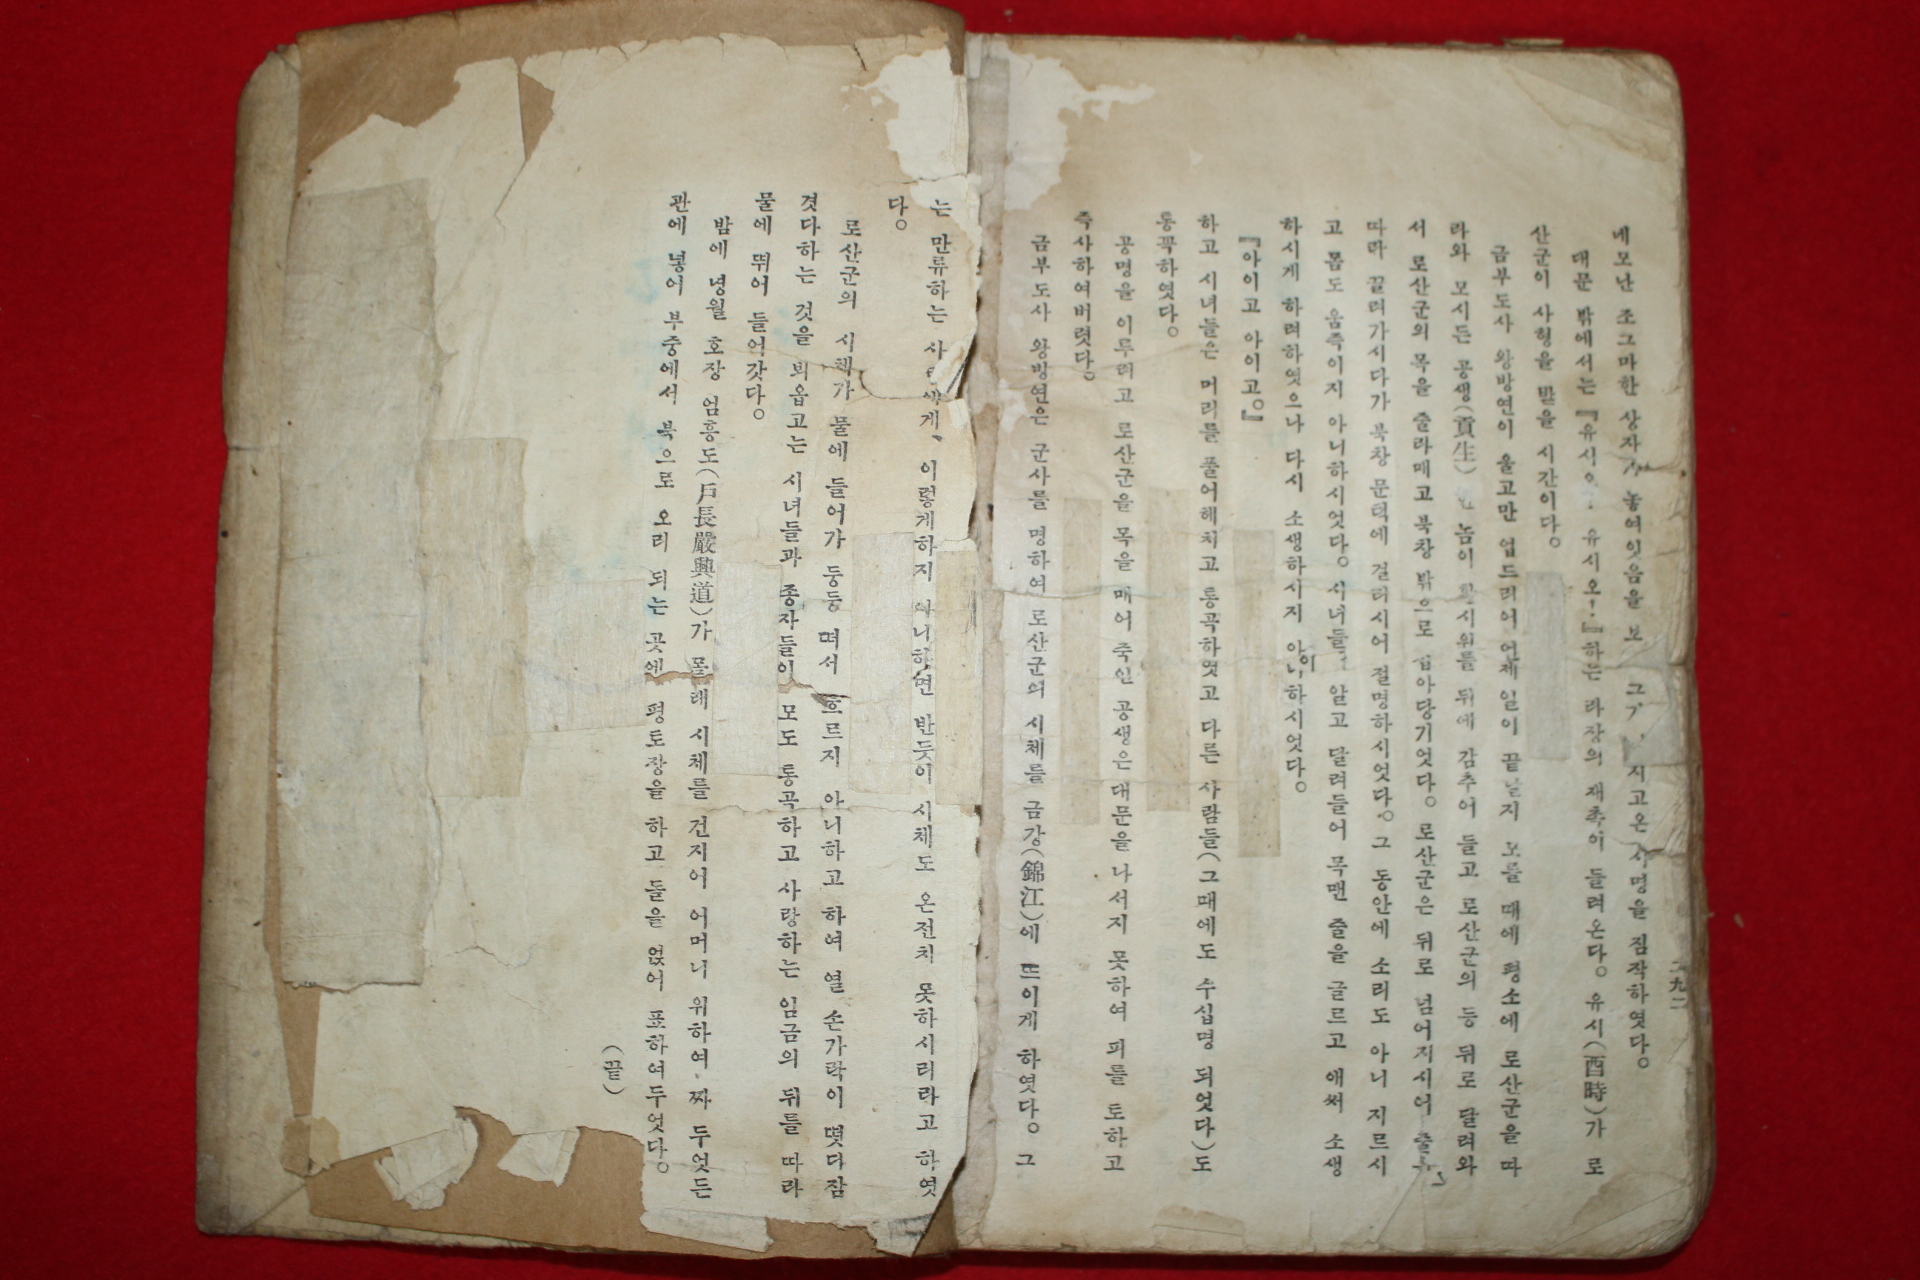 네모난 조그마한 상자가 놓여잇음을 보 지고온 사명을 짐작하엿다。
대문 밖에서는『유시오! 유시오!』하는 라장의 재촉이 들려온다。유시(酉時)가 로
산군이 사형을 받을 시간이다。
금부도사 왕방연이 울고만 업드리어 어찌 일이 끝날지 모를 때에 평소에 로산군을 따
라와 모시든 공생(貢生) 놈이 활시위를 뒤에 감추어 들고 로산군의 등 뒤로 달려와
서 로산군의 목을 졸라매고 북창 밖으로 잡아당기엇다。로산군은 뒤로 넘어지시어 줄
따라 끌려가시다가 북창 문턱에 걸리시어 절명하시엇다。그 동안에 소리도 아니 지르시
고 몸도 움죽이지 아니하시엇다。시녀들이 알고 달려들어 목맨 줄을 글르고 애써 소생
하시게 하려하엿으나 다시 소생하시지 아니하시엇다。
『아이고 아이고。』
하고 시녀들은 머리를 풀어헤치고 통곡하엿고 다른 사람들(그때에도 수십명 되엇다)도
통곡하엿다。
공명을 이루려고 로산군을 목을 매어 죽인 공생은 대문을 나서지 못하여 피를 토하고
즉사하여버렷다。
금부도사 왕방연은 군사를 명하여 로산군의 시체를 금강(錦江)에 뜨이게 하엿다。그
는 만류하는 사람에게、이렇게하지 아니하면 반듯이 시체도 온전치 못하시리라고 하엿
다。
로산군의 시체가 물에 들어가 둥둥 떠서 흐르지 아니하고 하여 열 손가락이 떳다잠
겻다하는 것을 뵈옵고는 시녀들과 종자들이 모도 통곡하고 사랑하는 임금의 뒤를 따라
물에 뛰어 들어갓다。
밤에 녕월 호장 엄흥도(戶長嚴興道)가 몰래 시체를 건지어 어머니 위하여 짜 두엇든
관에 넣어 부중에서 북으로 오리 되는 곳에 평토장을 하고 돌을 얹어 표하여두엇다。
(끝)